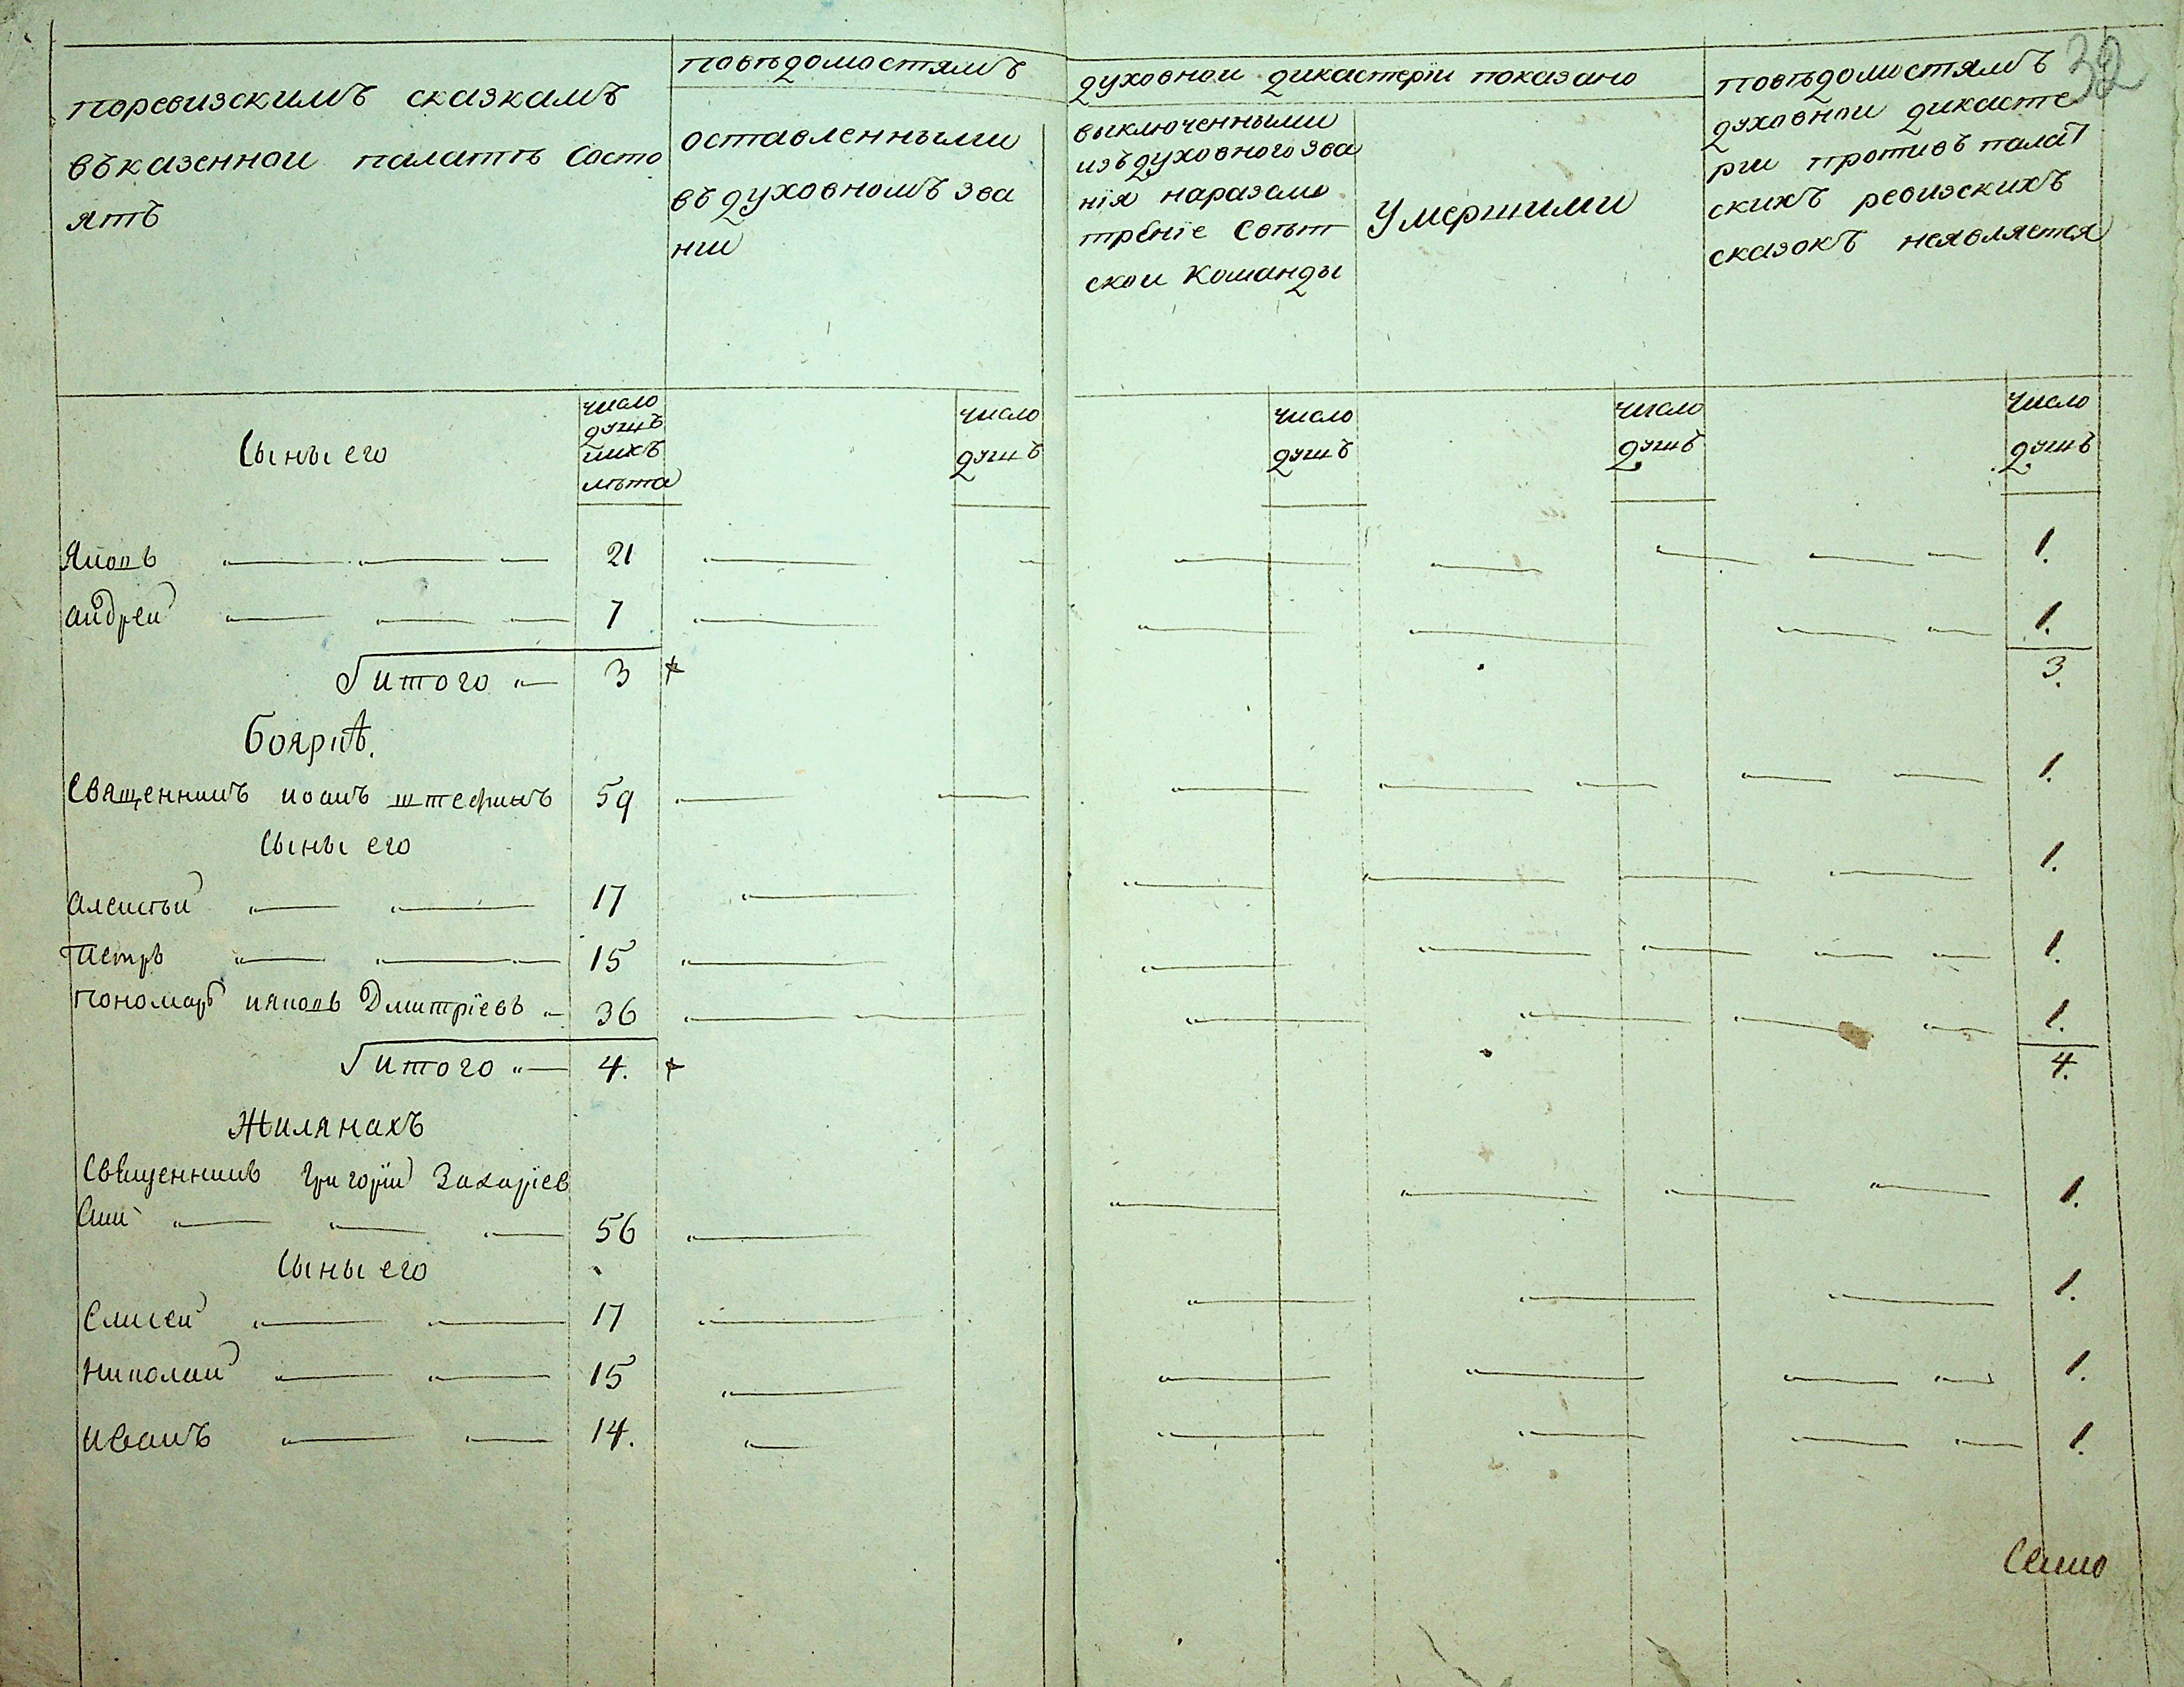 32
поревизскимъ сказкамъ
въказеннои палатѣ Состо
ятъ
повѣдомостямъ
оставленными
въ духовномъ зва
нии
духовнои дикастерїи показано
выключенными
изъ духовного зва
нїя наразсмо
трѣнїе Свѣт
скои Команды
Умершими
повѣдомостямъ
духовнои дикасте
рїи противъ палат
скихъ ревизскихъ
сказокъ неявляется
Сыны его
число
душъ
ихъ
лѣта
число
душъ
число
душъ
число
душъ
число
душъ
Яковъ 21 1.
андреи 7 1.
итого 3 3.
Боярнѣ.
Священникъ иоанъ штефанъ 59 1.
Сыны его
алексѣи 17 1.
Петръ 15 1.
пономарь ияковъ Дмитрїевъ 36 1.
итого 4. 4.
Жилянахъ
Священникъ Григорїи Захарїев
Скии 56 1.
Сыны его
Елисеи 17 1.
Николаи 15 1.
Иванъ 14. 1.